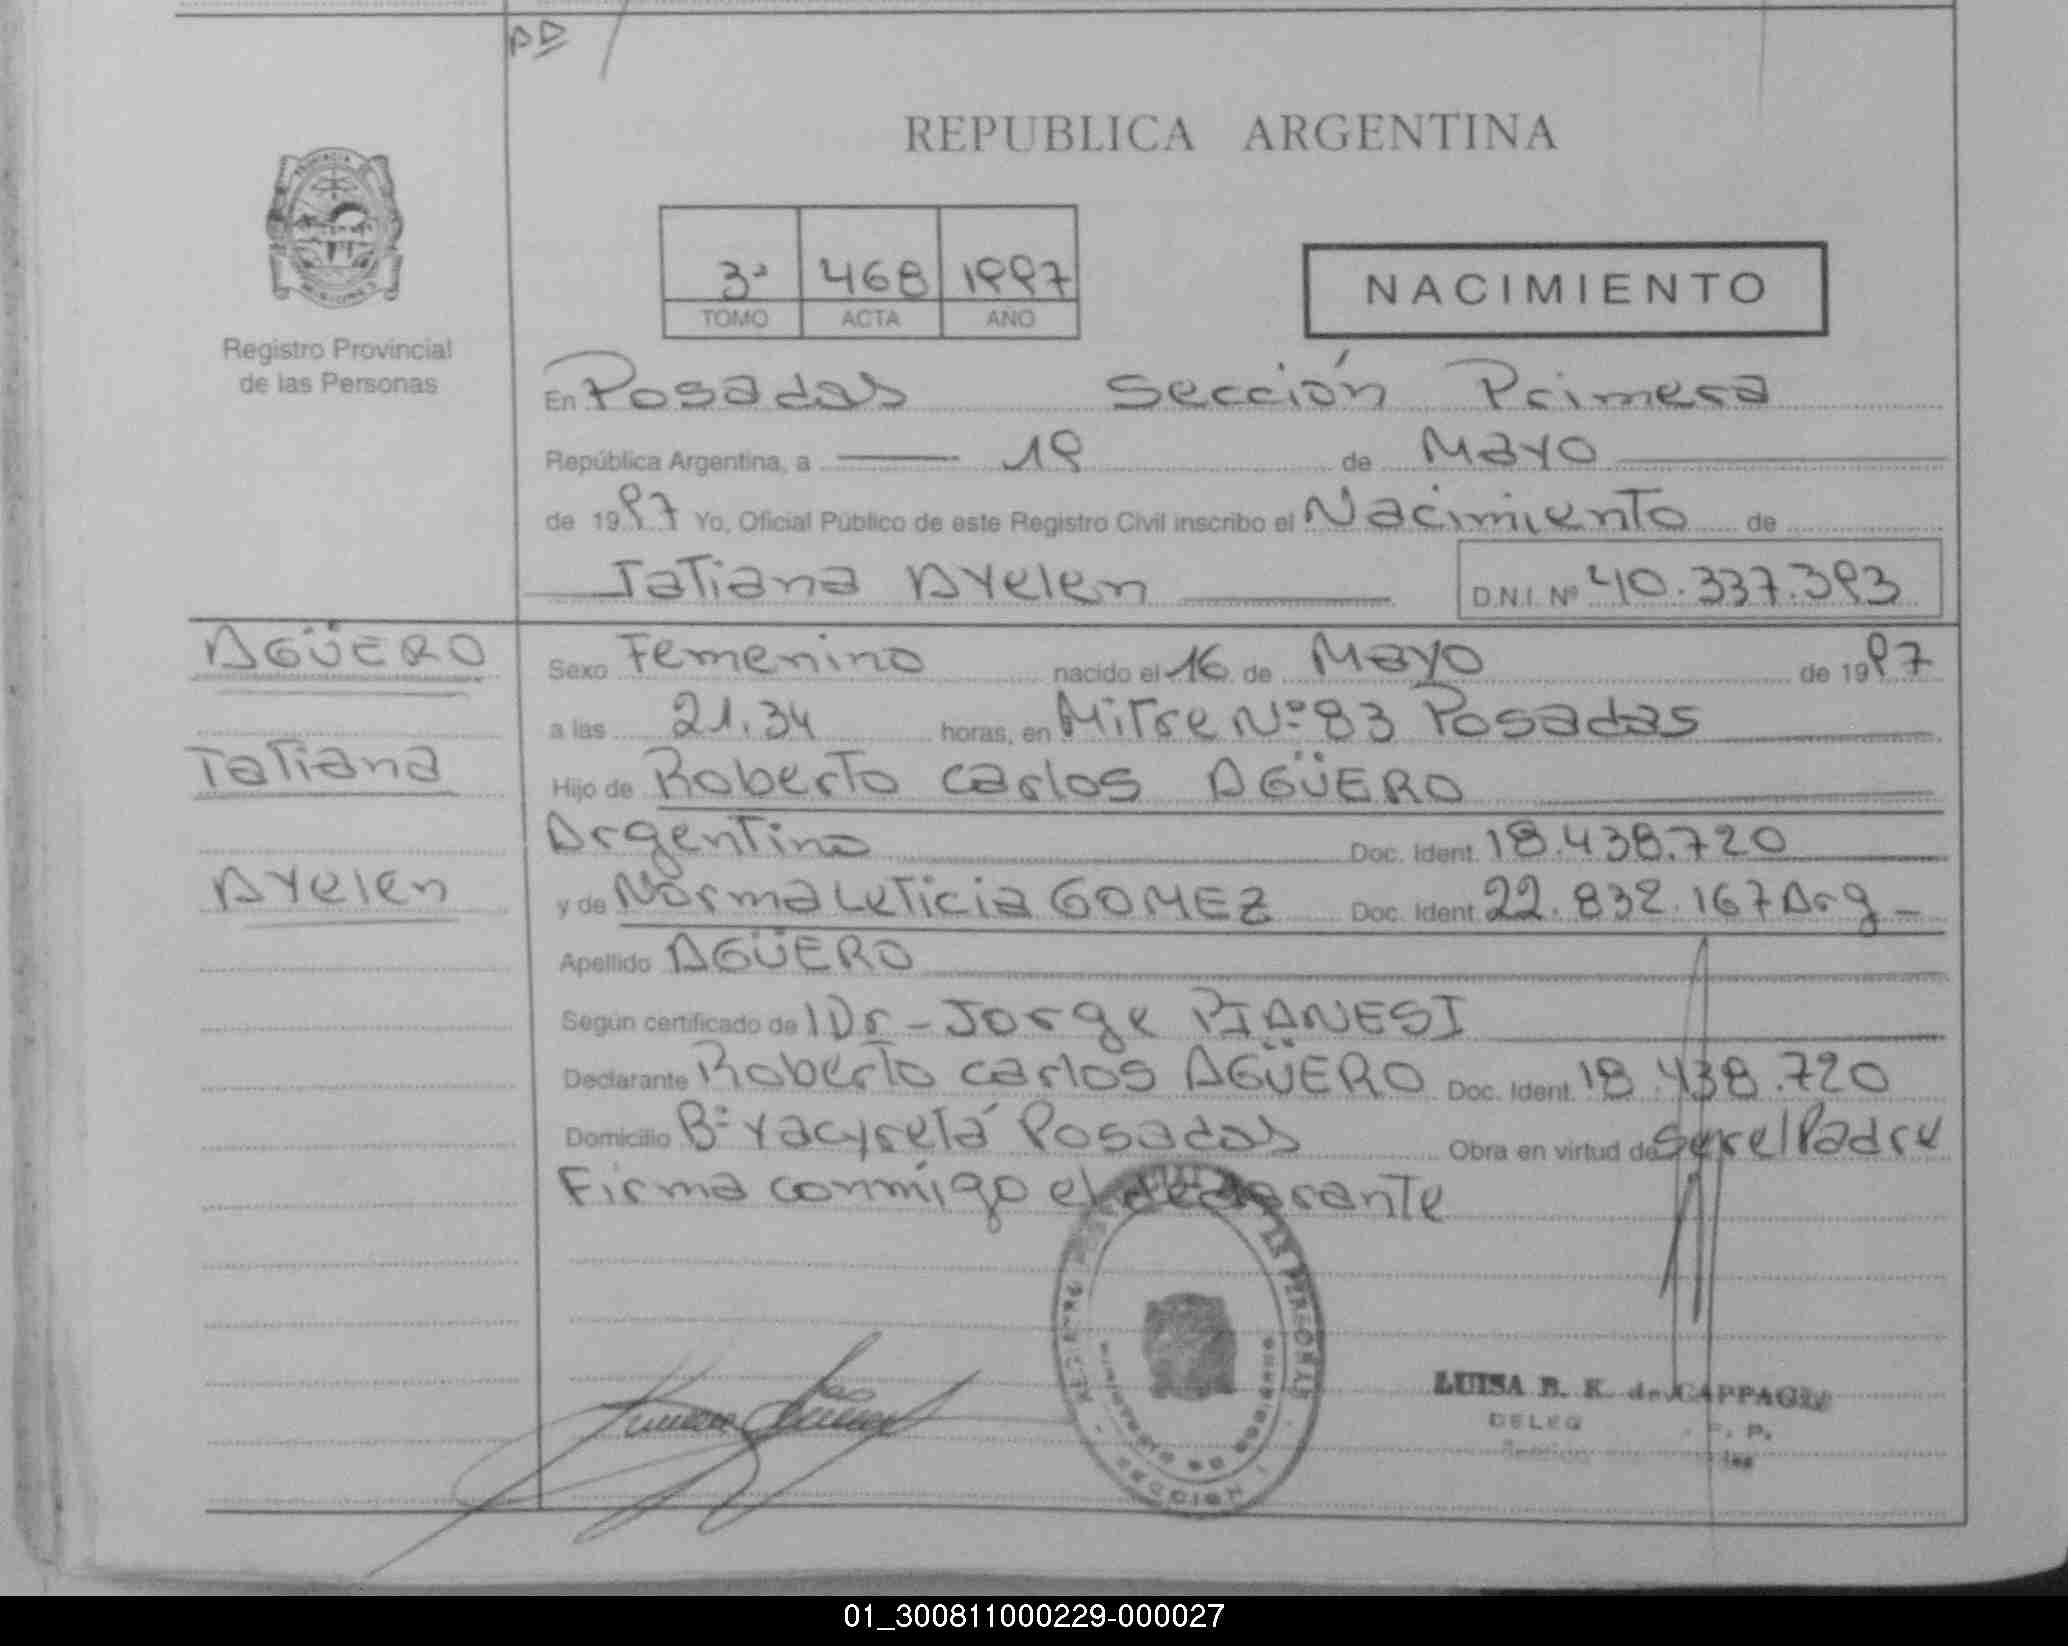 AD
REPUBLICA ARGENTINA
3º 468 1997
TOMO ACTA AÑO
NACIMIENTO
Registro Provincial
de las Personas
En Posadas Sección Primera
República Argentina, a 19 de Mayo
de 1997 Yo, Oficial Público de este Registro Civil inscribo el Nacimiento de
Tatiana Ayelen D.N.I. Nº 40.337.393
AGÜERO
Tatiana
Ayelen
Sexo Femenino nacido el 16 de Mayo de 1997
a las 21.34 horas, en Mitre Nº 83 Posadas
Hijo de Roberto Carlos AGÜERO
Argentino Doc. Ident. 18.438.720
y de Norma Leticia GOMEZ Doc. Ident. 22.832.167 Arg
Apellido AGÜERO
Según certificado de Dr. Jorge PIANESI
Declarante Roberto Carlos AGÜERO Doc. Ident. 18.438.720
Domicilio Bº Yacyretá Posadas Obra en virtud de Ser el Padre
Firma conmigo el declarante
LUISA B. K. de CAPPAGLI
DELEG
01_300811000229-000027